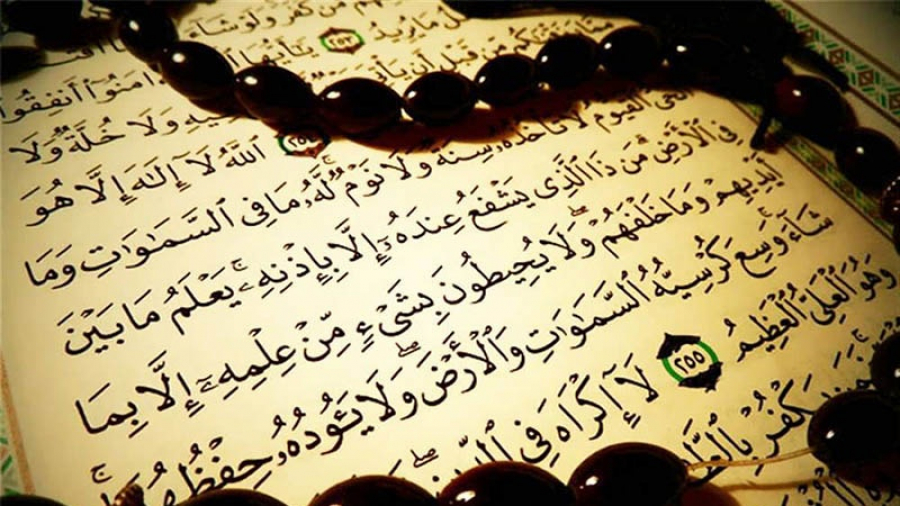 مَّن كَفَرَ وَلَوْ شَآءَ
مَا يُرِيدُ ٢٥٣ يَٰٓأَيُّهَا ءَامَنُوٓا۟ أَنفِقُوا۟
مِن قَبْلِ أَن يَأْتِىَ فِيهِ وَلَا خُلَّةٌ وَلَا
٢٥٤ ٱللَّهُ لَآ إِلَٰهَ إِلَّا هُوَ
ٱلْحَىُّ ٱلْقَيُّومُ لَا تَأْخُذُهُۥ سِنَةٌ وَلَا نَوْمٌ لَّهُۥ مَا فِى ٱلسَّمَٰوَٰتِ وَمَا
فِى ٱلْأَرْضِ مَن ذَا ٱلَّذِى يَشْفَعُ عِندَهُۥٓ إِلَّا بِإِذْنِهِۦ يَعْلَمُ مَا بَيْنَ
أَيْدِيهِمْ وَمَا خَلْفَهُمْ وَلَا يُحِيطُونَ بِشَىْءٍ مِّنْ عِلْمِهِۦٓ إِلَّا بِمَا
شَآءَ وَسِعَ كُرْسِيُّهُ ٱلسَّمَٰوَٰتِ وَٱلْأَرْضَ وَلَا يَـُٔودُهُۥ حِفْظُهُمَا
وَهُوَ ٱلْعَلِىُّ ٱلْعَظِيمُ ٢٥٥ لَآ إِكْرَاهَ فِى
يَكْفُرْ